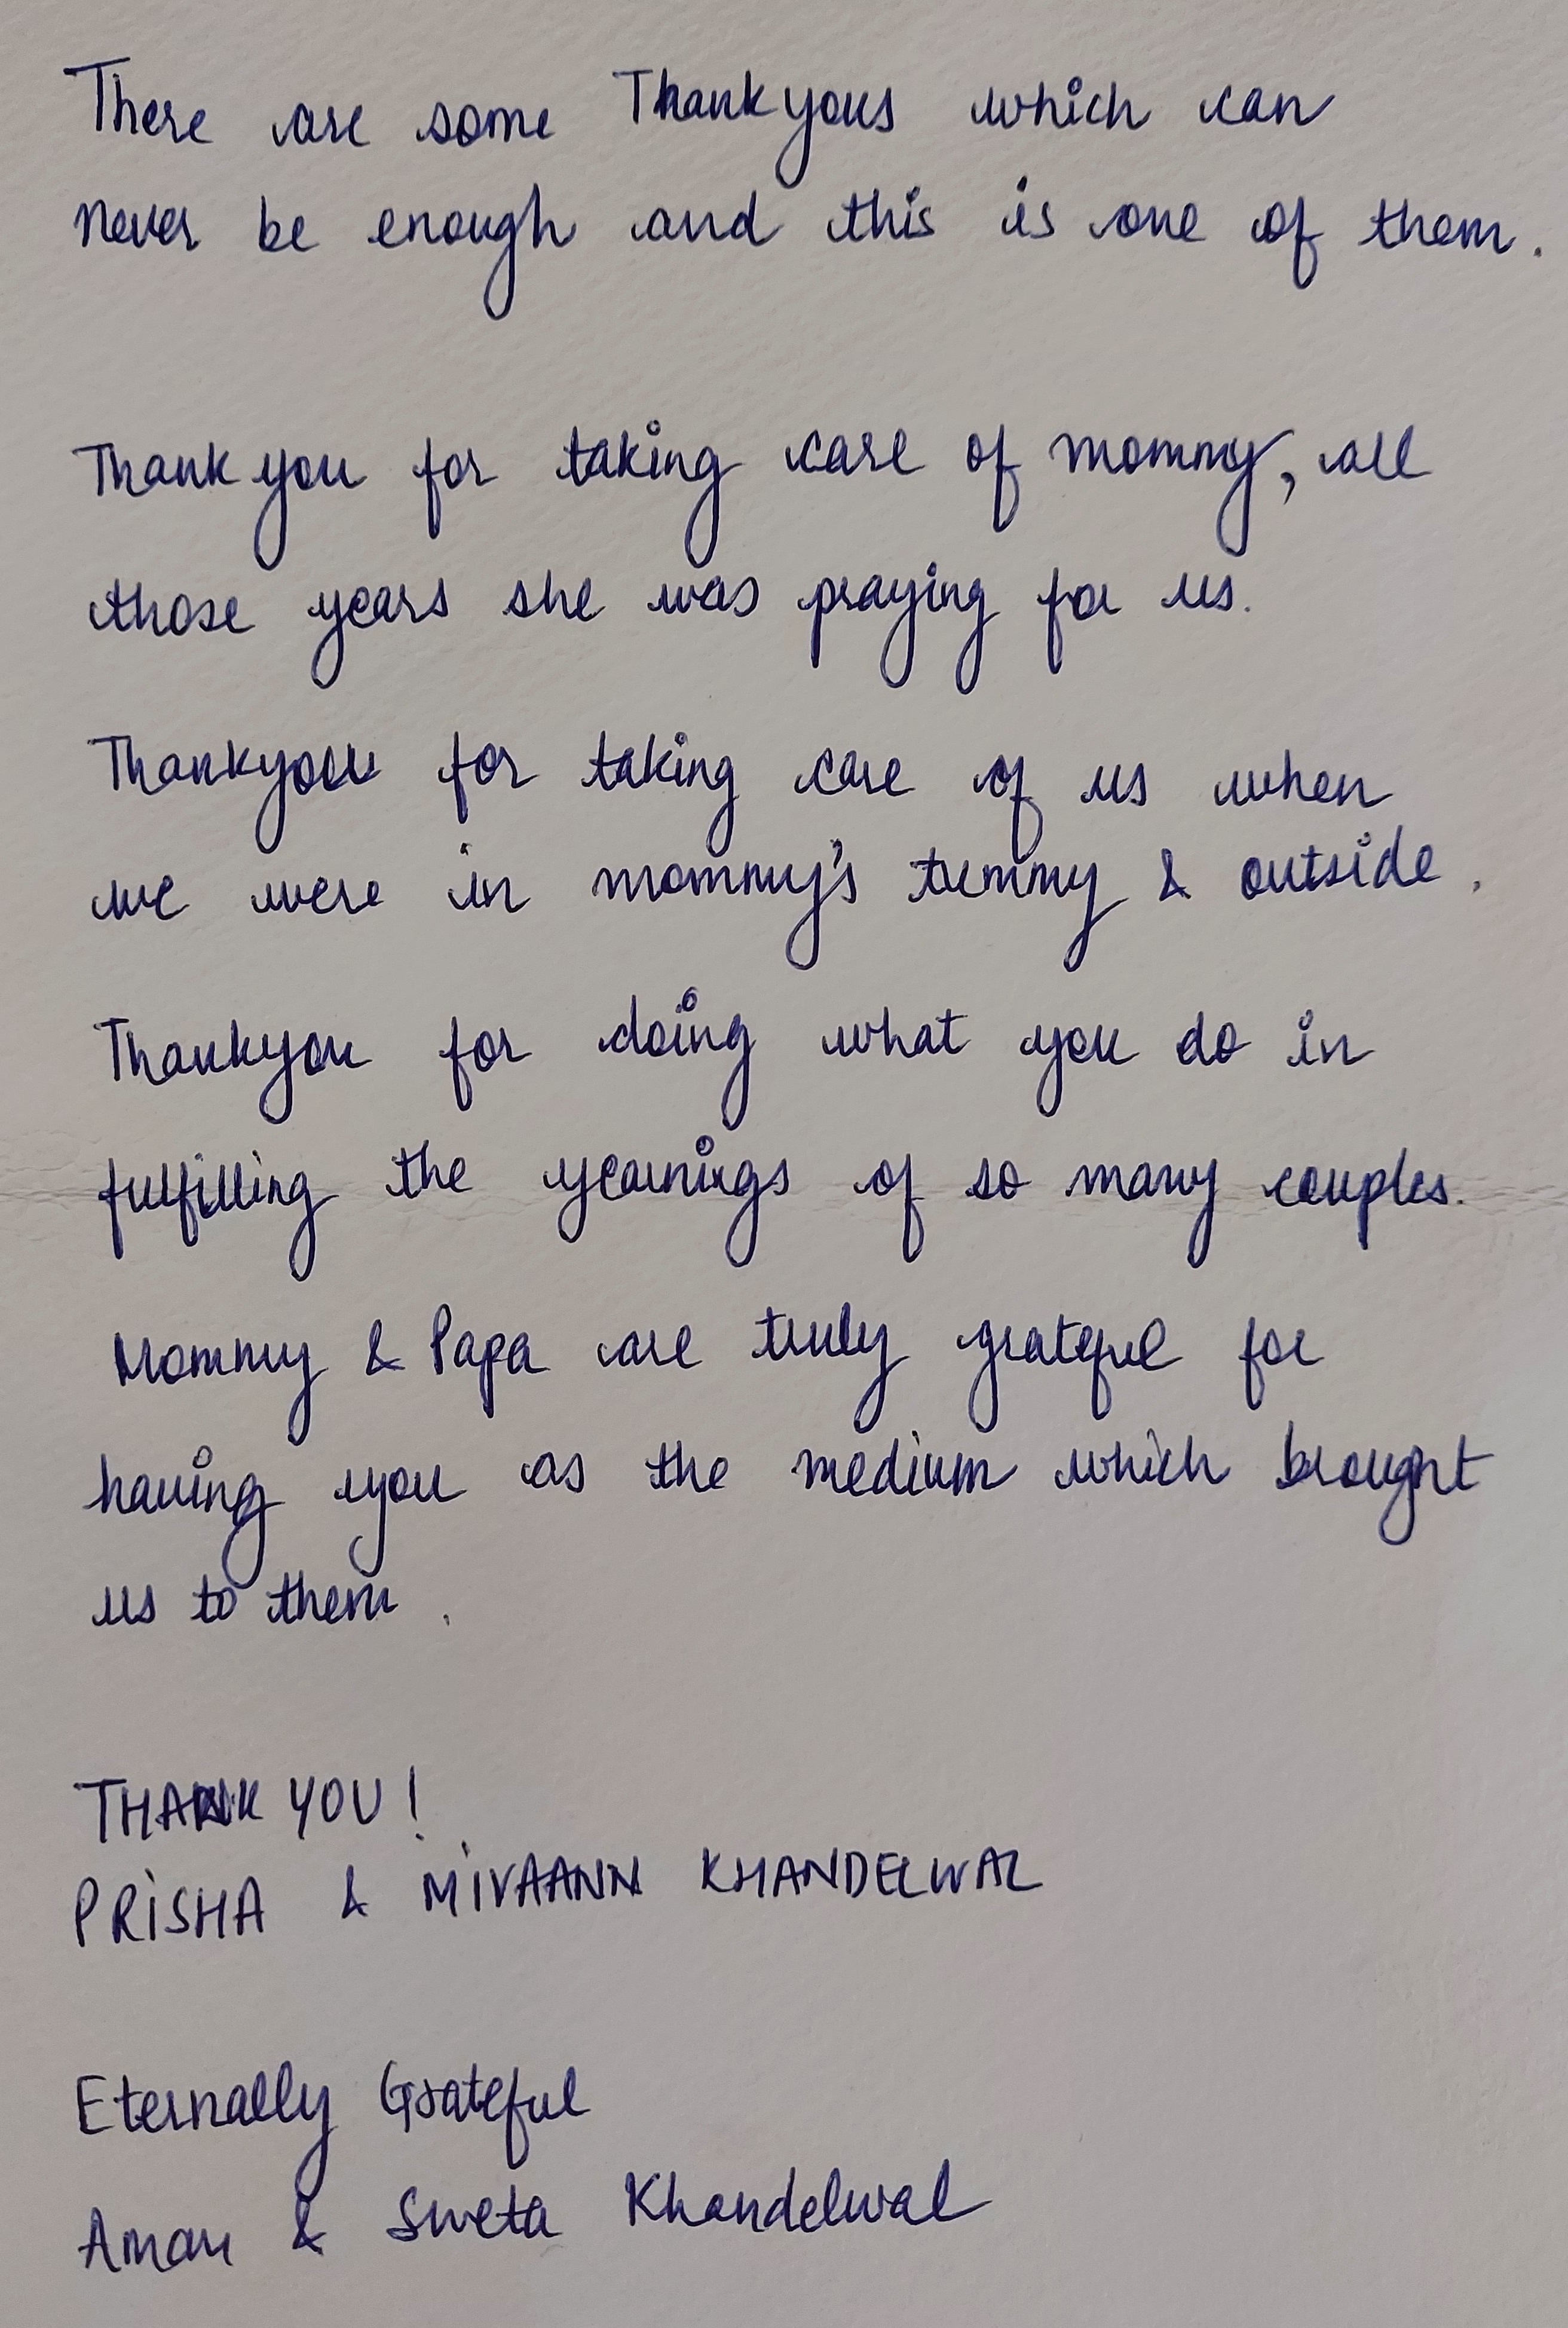 There are some Thankyous which can
never be enough and this is one of them.
Thank you for taking care of mommy, all
those years she was praying for us.
Thankyou for taking care of us when
we were in mommy's tummy & outside.
Thankyou for doing what you do in
fulfilling the yearnings of so many couples.
Mommy & Papa are truly grateful for
having you as the medium which brought
us to them.
THANK YOU!
PRISHA & MIVAANN KHANDELWAL
Eternally Grateful
Aman & Sweta Khandelwal